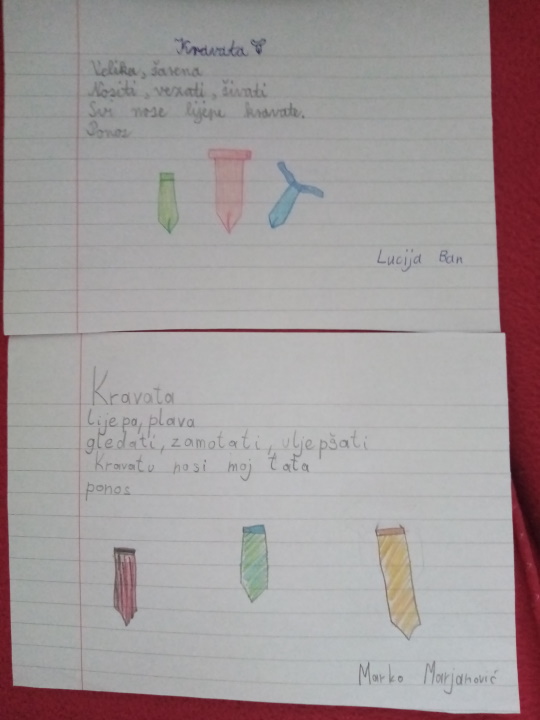 Kravata
Velika, šarena
Nositi, vezati, šivati
Svi nose lijepe kravate.
Ponos
Lucija Ban
Kravata
lijepa, plava
gledati, zamotati, uljepšati
Kravatu nosi moj tata
ponos
Marko Marjanović